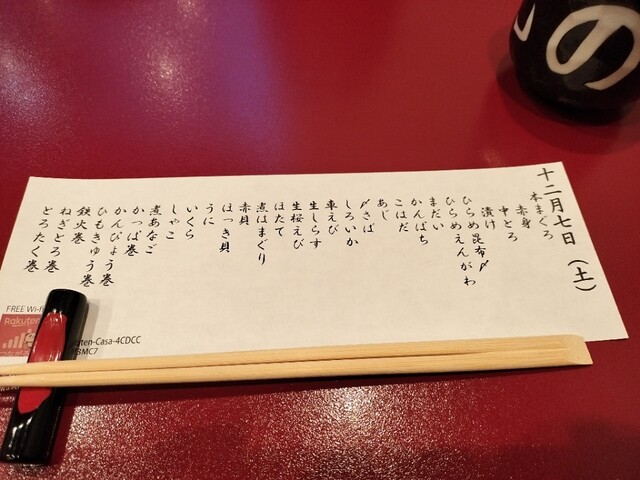 十二月七日(土)
本まぐろ
赤身
中とろ
漬け
ひらめ昆布〆
ひらめえんがわ
まだい
かんぱち
こはだ
あじ
〆さば
しろいか
車えび
生しらす
生桜えび
ほたて
煮はまぐり
赤貝
ほっき貝
うに
いくら
しゃこ
煮あなご
かっぱ巻
かんぴょう巻
ひもきゅう巻
鉄火巻
ねぎとろ巻
とろたく巻
FREE Wi-Fi
Rakuten
uten-Casa-4CDCC
の